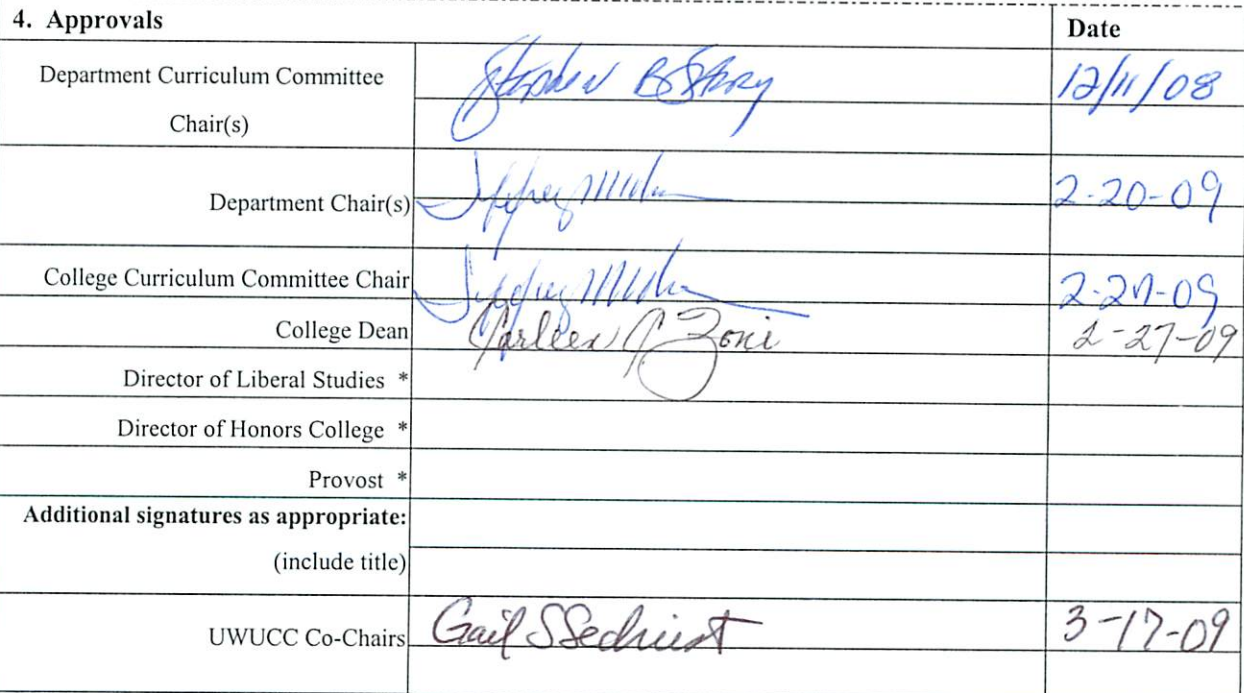 4. Approvals Date
Department Curriculum Committee
Chair(s) Stephen B 12/11/08
Department Chair(s) Jeffrey 2-20-09
College Curriculum Committee Chair Jeffrey 2-27-09
College Dean Carleen C Zoni 2-27-09
Director of Liberal Studies *
Director of Honors College *
Provost *
Additional signatures as appropriate:
(include title)
UWUCC Co-Chairs Gail S Sechrist 3-17-09